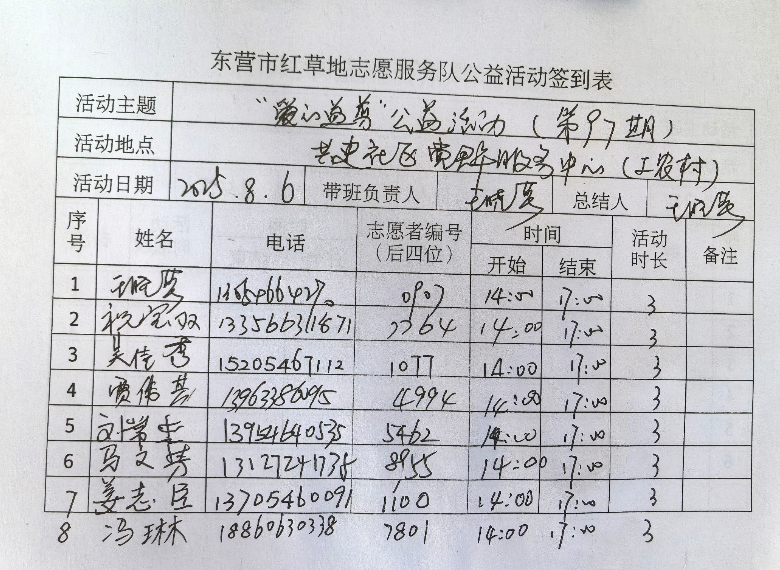 东营市红草地志愿服务队公益活动签到表
活动主题 “爱的益剪”公益活动（第97期）
活动地点 共建社区党群服务中心（工农村）
活动日期 2025.8.6 带班负责人 总结人
序号 姓名 电话 志愿者编号（后四位） 时间 活动时长 备注
开始 结束
1 0907 14:00 17:00 3
2 13356631871 2264 14:00 17:00 3
3 吴佳秀 15205467112 1077 14:00 17:00 3
4 贾伟基 13963386095 4994 14:00 17:00 3
5 13954640535 5462 14:00 17:00 3
6 马文 8955 14:00 17:00 3
7 姜志臣 13705460091 1100 14:00 17:00 3
8 冯琳 18860630338 7801 14:00 17:00 3